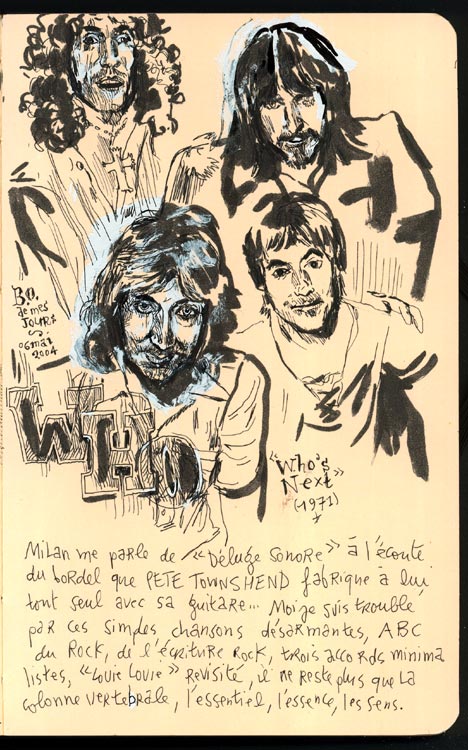 B.O.
de mes
JOURS
06 mai
2004
WHO
"Who's
Next"
(1971)
Milan me parle de "Déluge Sonore" à l'écoute
du bordel que PETE TOWNSHEND fabrique à lui
tout seul avec sa guitare... Moi je suis troublé
par ces simples chansons désarmantes, ABC
du Rock, de l'écriture Rock, trois accords minima
listes, "Louie Louie" revisité, il ne reste plus que la
colonne vertébrale, l'essentiel, l'essence, les sens.